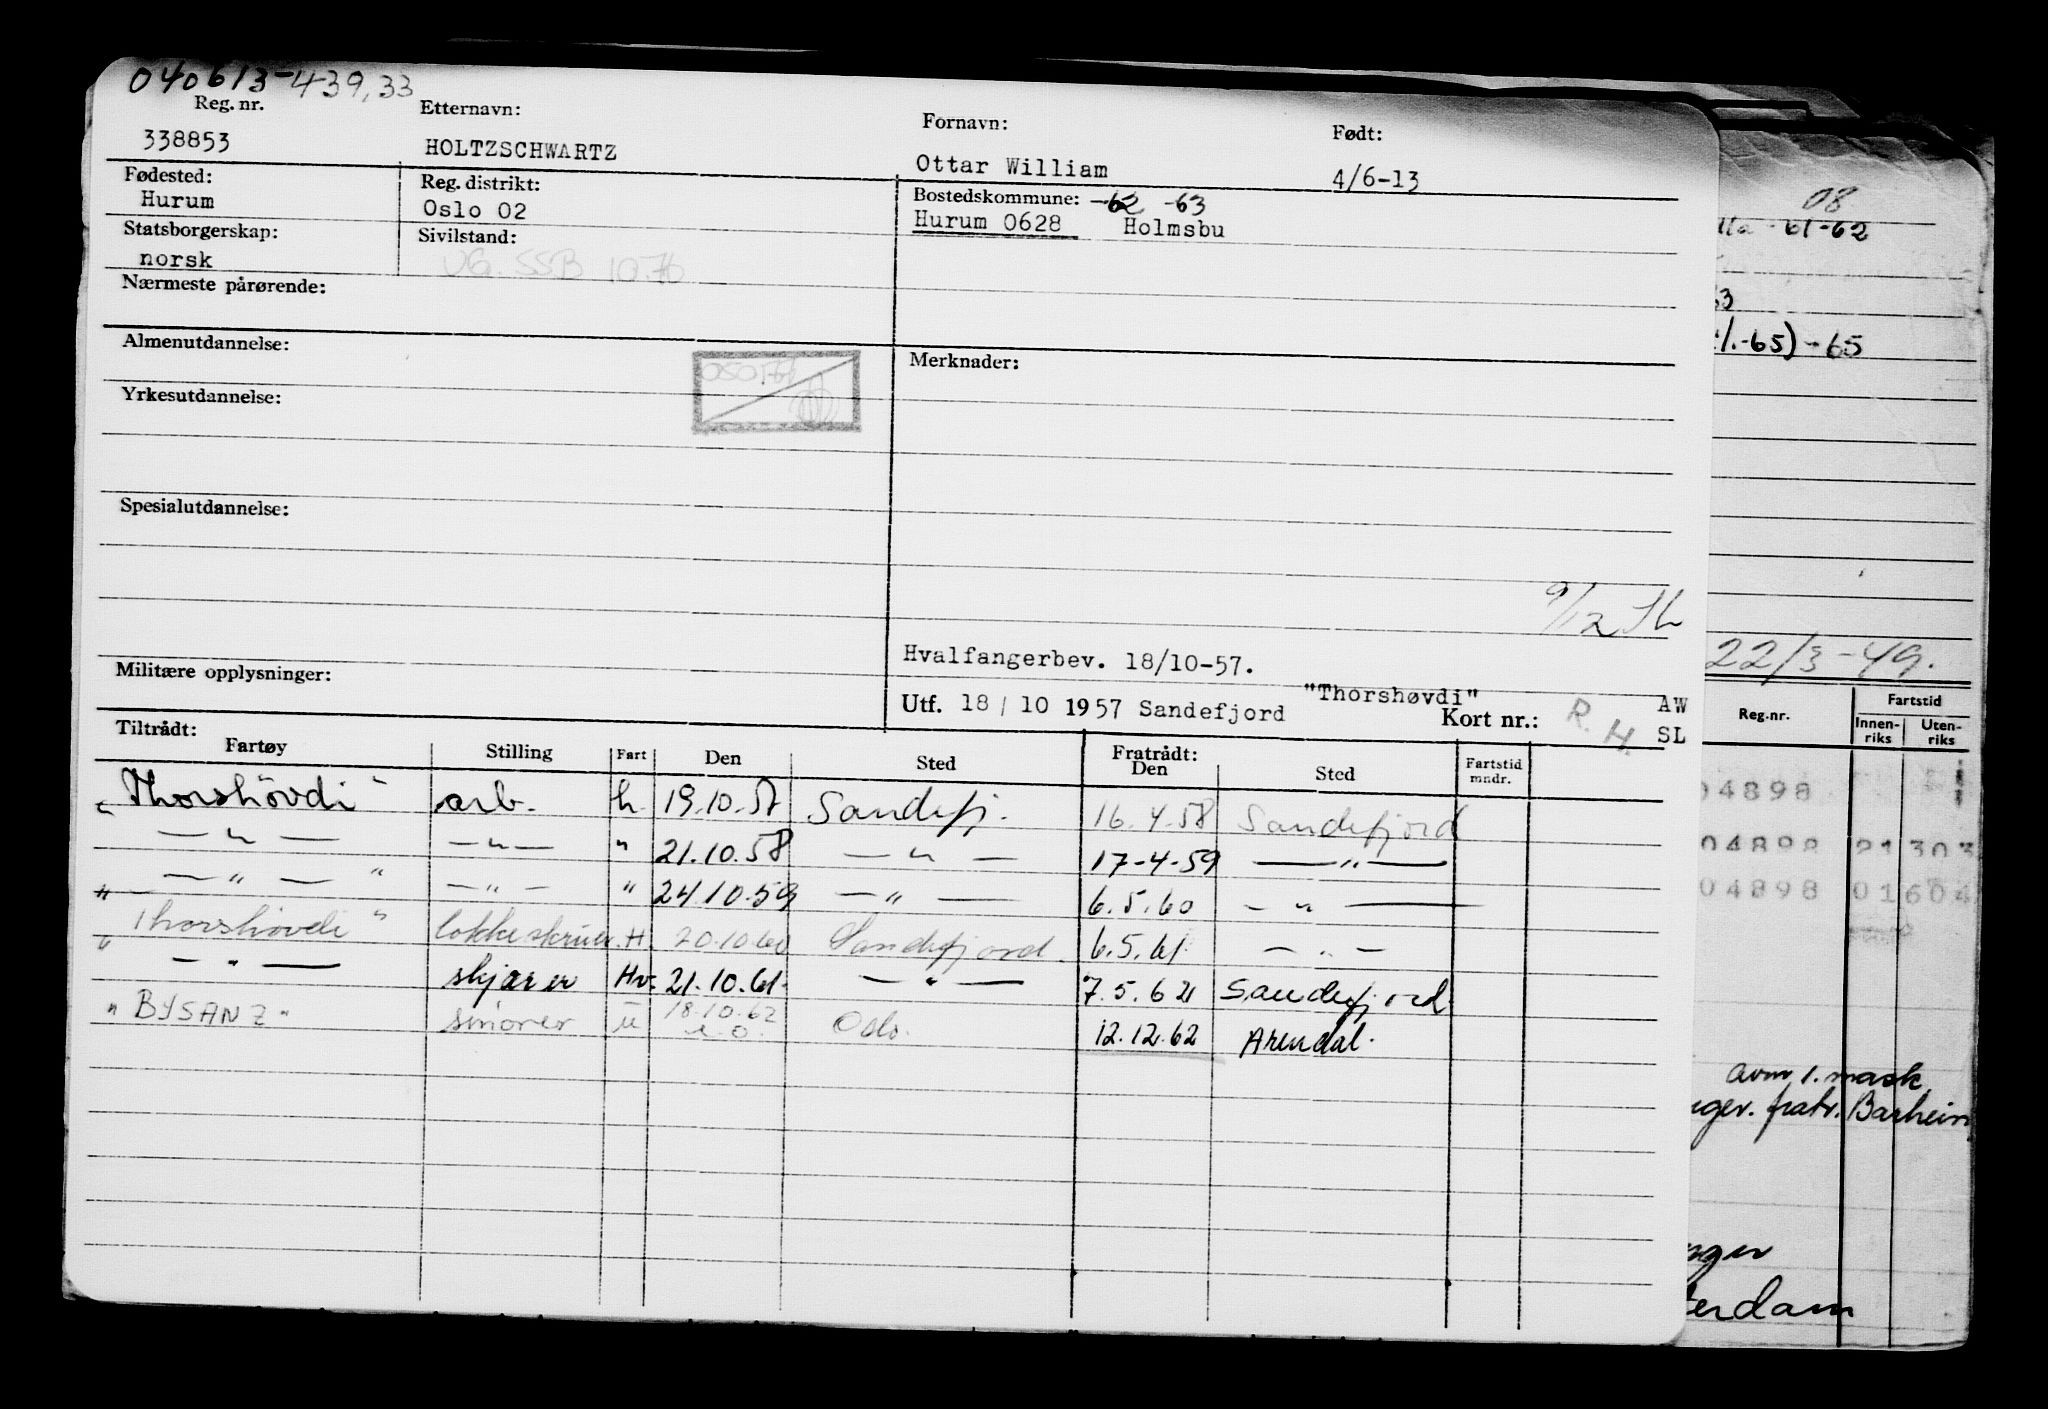 040613-439,33
Reg. nr. Etternavn: Fornavn: Født:
338853 HOLTZSCHWARTZ Ottar William 4/6-13
Fødested: Reg. distrikt: Bostedskommune: -62 -63
Hurum Oslo 02 Hurum 0628 Holmsbu
Statsborgerskap: Sivilstand:
norsk UG. SSB 10.76
Nærmeste pårørende:
Almenutdannelse: Merknader:
Yrkesutdannelse:
Spesialutdannelse:
9/12
Hvalfangerbev. 18/10-57.
Militære opplysninger: "Thorshøvdi"
Utf. 18 / 10 1957 Sandefjord Kort nr.: R. H. AW
SL
Tiltrådt: Fratrådt:
Fartøy Stilling Fart Den Sted Den Sted Fartstid mndr.
"Thorshövdi" arb. h. 19.10.57 Sandefj. 16.4.58 Sandefjord
— " — — " — " 21.10.58 — " — 17-4-59 — " —
" — " — " — " — " 24.10.59 — " — 6.5.60 — " —
" Thorshövdi " lokkeskruer H. 20.10.60 Sandefjord. 6.5.61 — " —
— " — skjærer Hv. 21.10.61. — " — 7.5.62 Sandefjord
" BYSANZ " smører u 18.10.62 Oslo. 12.12.62 Arendal.
08
-61-62
63
-65) -65
22/3-49.
Reg.nr. Fartstid
Innen-riks Uten-riks
04898
04898 21 303
04898 01 604
avm 1. mask
fratr.
terdam